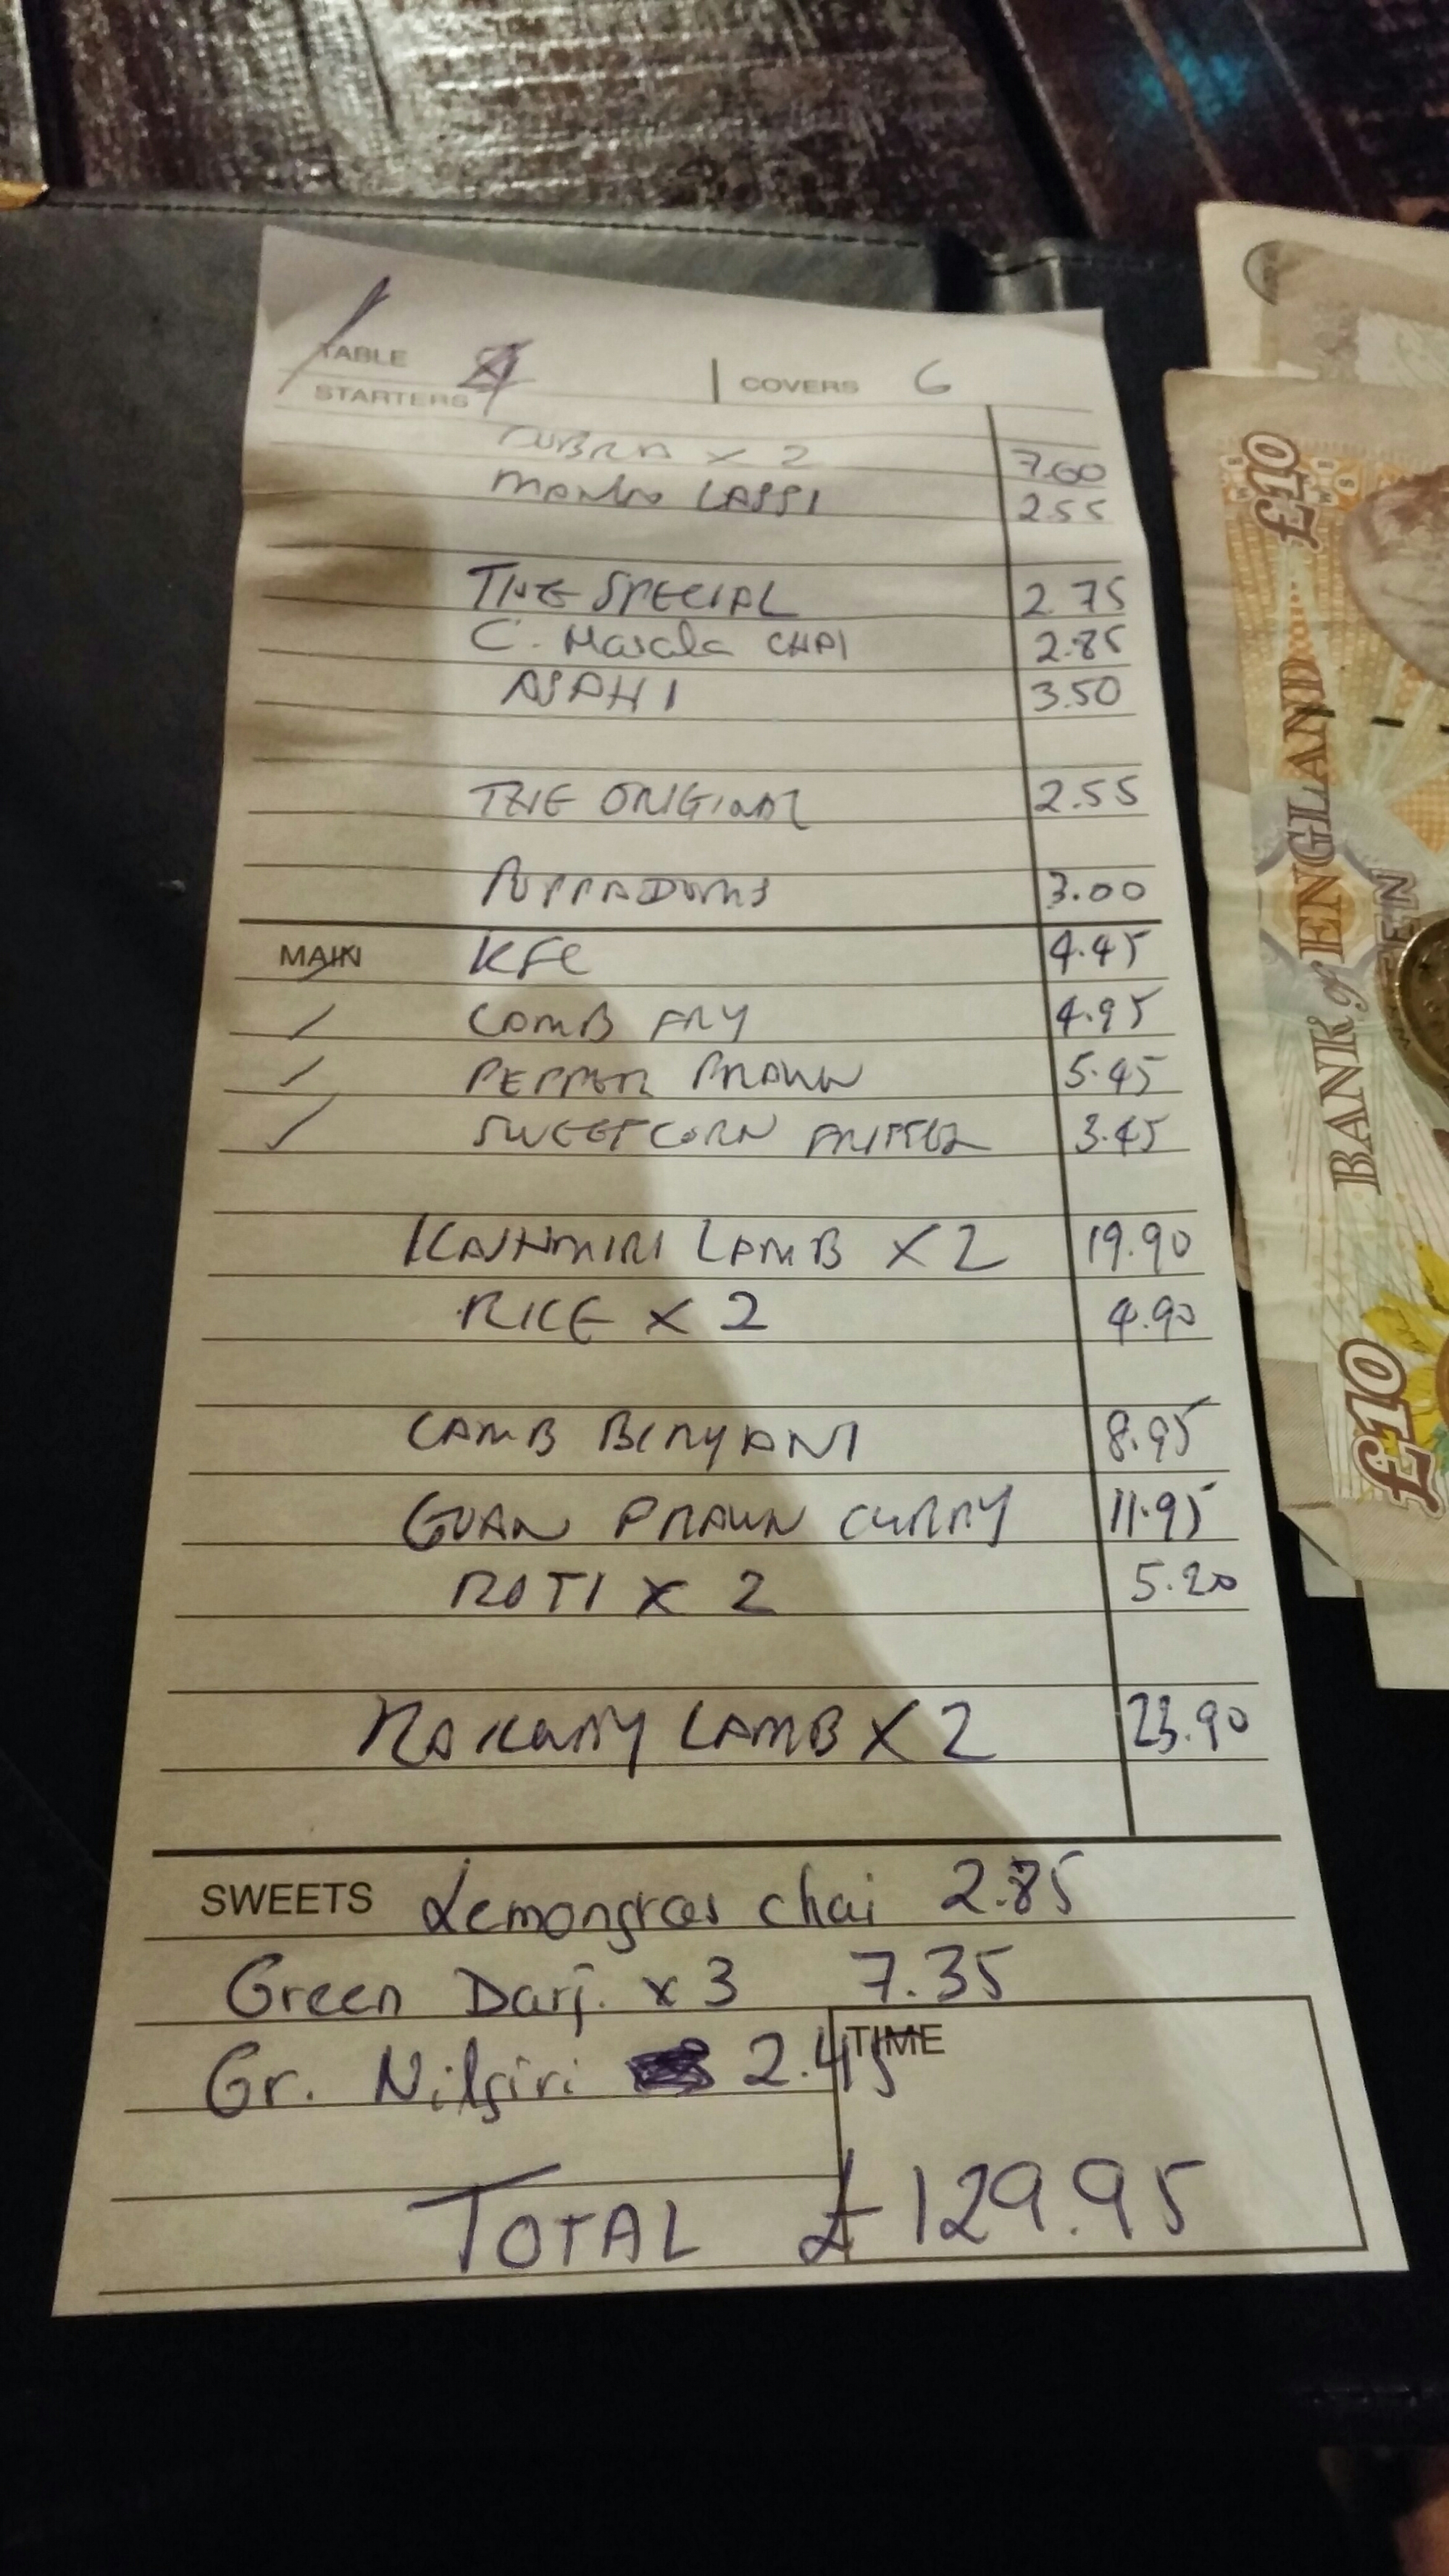 TABLE
COVERS 6
STARTERS
COBRA x 2 7.60
MANGO LASSI 2.55
THE SPECIAL 2.75
C. Masala CHAI 2.85
ASAHI 3.50
THE ORIGINAL 2.55
POPPADOMS 3.00
MAIN KFC 4.45
LAMB FRY 4.95
PEPPER PRAWN 5.45
SWEETCORN FRITTER 3.45
KASHMIRI LAMB x 2 19.90
RICE x 2 4.90
LAMB BIRYANI 8.95
GOAN PRAWN CURRY 11.95
ROTI x 2 5.20
RAILWAY LAMB x 2 23.90
SWEETS Lemongras chai 2.85
Green Darj. x 3 7.35
Gr. Nilgiri 2.45
TIME
TOTAL £129.95
£10
BANK of ENGLAND
£10